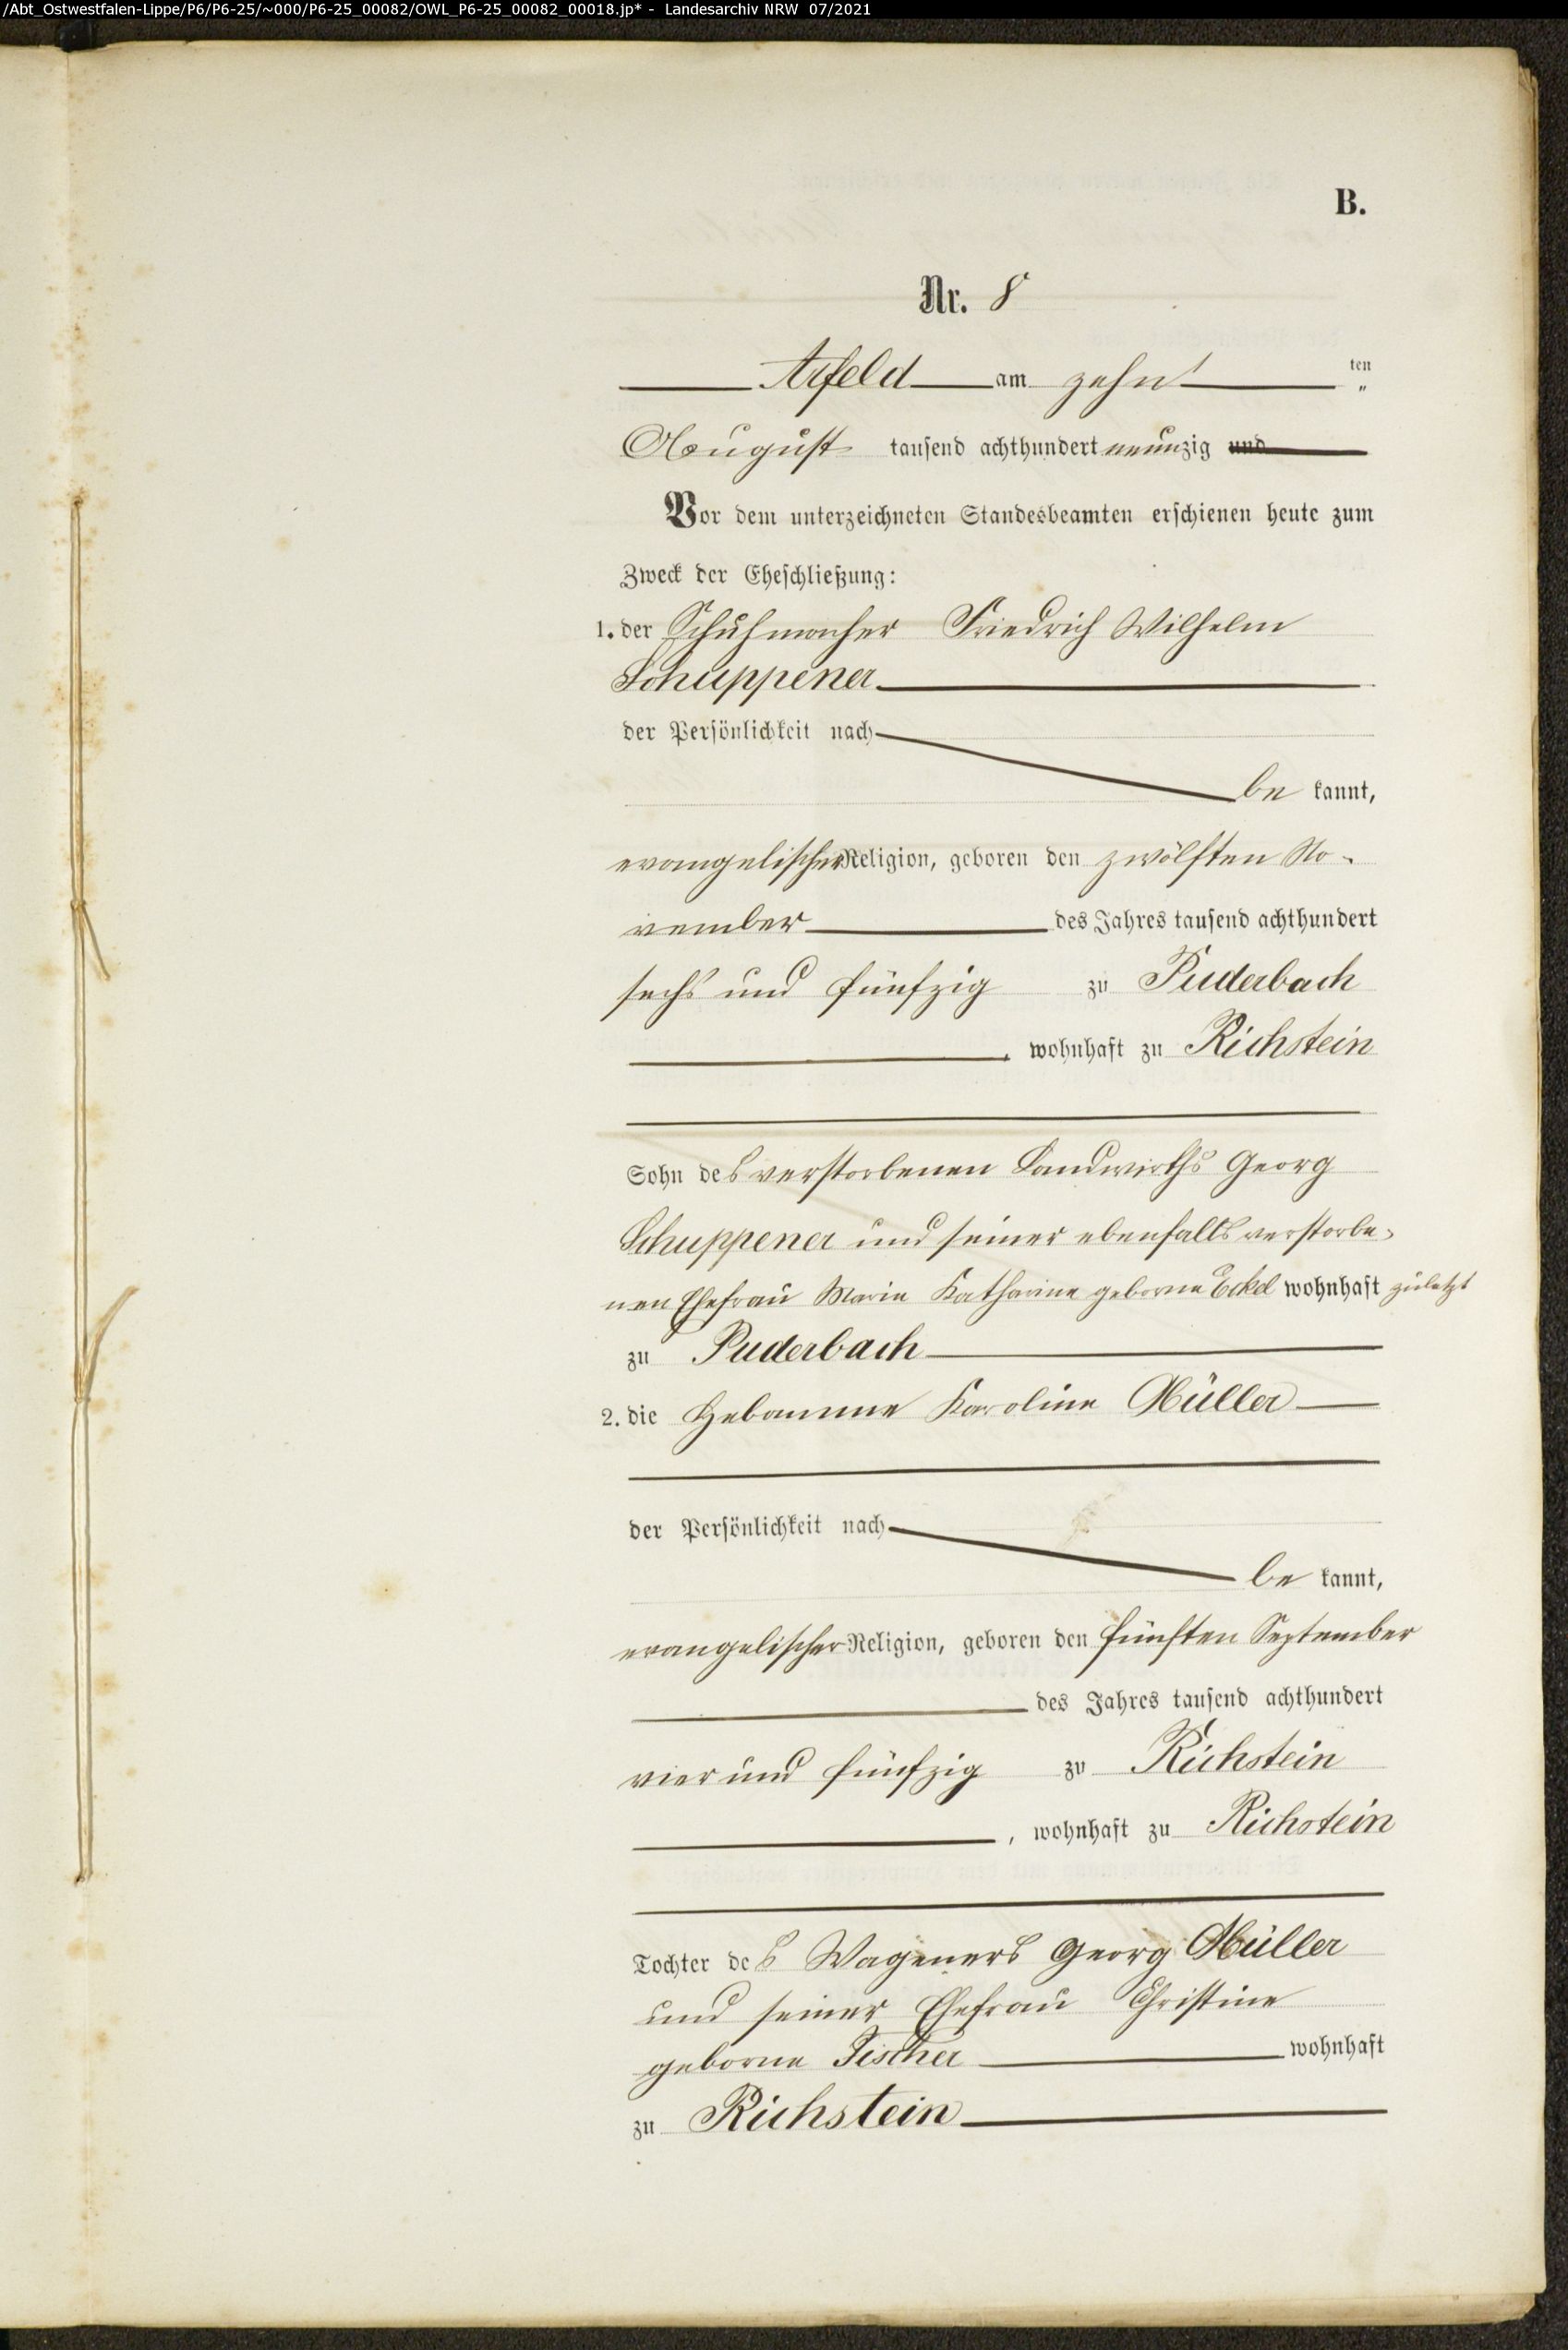 /Abt_Ostwestfalen-Lippe/P6/P6-25/~000/P6-25_00082/OWL_P6-25_00082_00018.jp* - Landesarchiv NRW 07/2021
B.
Nr. 8
Arfeld am zehn ten
August tausend achthundert neunzig und
Vor dem unterzeichneten Standesbeamten erschienen heute zum
Zweck der Eheschließung:
1. der Schuhmacher Friedrich Wilhelm
Schuppener
der Persönlichkeit nach
be kannt,
evangelischer Religion, geboren den zwölften No-
vember des Jahres tausend achthundert
sechs und fünfzig zu Puderbach
, wohnhaft zu Richstein
Sohn des verstorbenen Landwirths Georg
Schuppener und seiner ebenfalls verstorbe-
nen Ehefrau Marie Katharine geborne Eckel wohnhaft zuletzt
zu Puderbach
2. die Hebamme Karoline Müller
der Persönlichkeit nach
be kannt,
evangelischer Religion, geboren den fünften September
des Jahres tausend achthundert
vier und fünfzig zu Richstein
, wohnhaft zu Richstein
Tochter des Wageners Georg Müller
und seiner Ehefrau Christine
geborne Fischer wohnhaft
zu Richstein